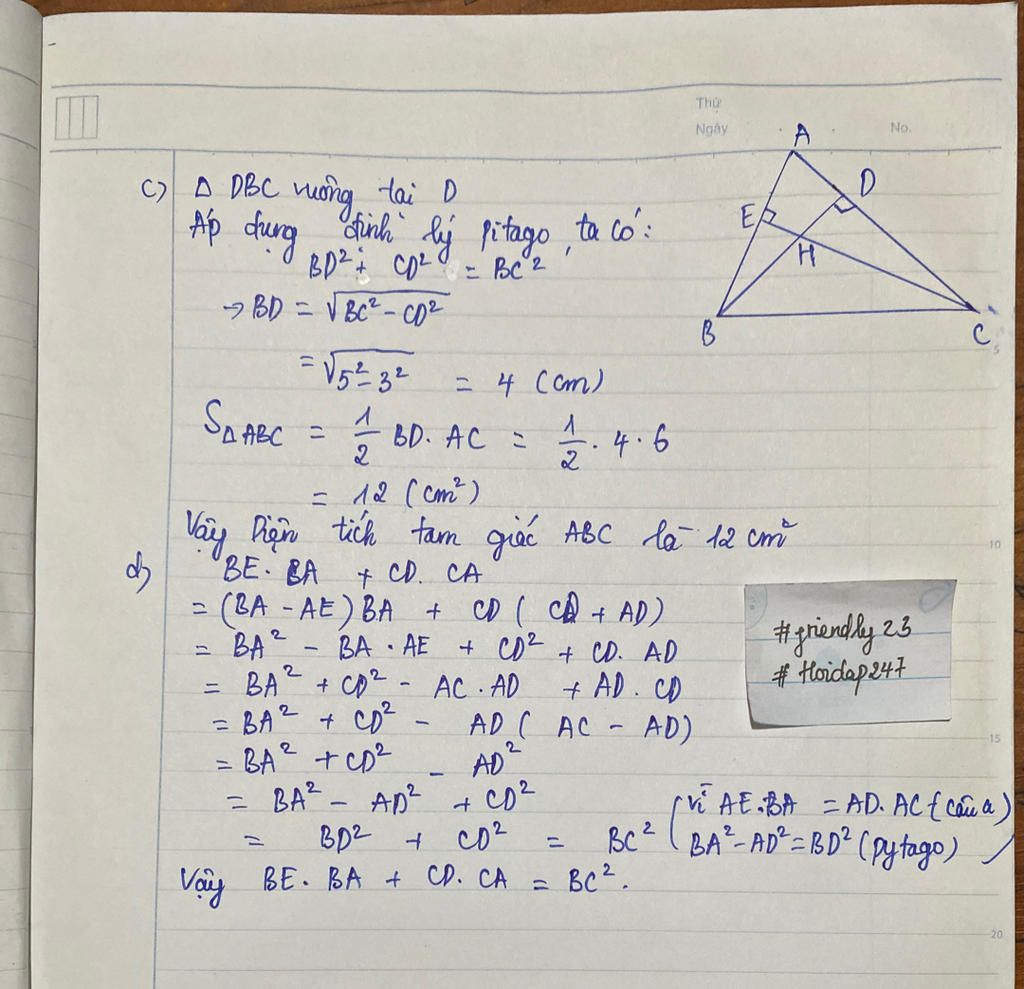 Thứ
Ngày
No.
A
D
E
H
B
C
c) Δ DBC vuông tại D
Áp dụng định lý pitago, ta có:
BD² + CD² = BC²
→ BD = √BC² - CD²
= √5² - 3² = 4 (cm)
S ΔABC = 1/2 BD. AC = 1/2 . 4 . 6
= 12 (cm²)
Vậy Diện tích tam giác ABC là 12 cm²
d) BE. BA + CD. CA
= (BA - AE) BA + CD ( CD + AD)
= BA² - BA . AE + CD² + CD. AD
= BA² + CD² - AC . AD + AD . CD
= BA² + CD² - AD ( AC - AD)
= BA² + CD² - AD²
= BA² - AD² + CD²
= BD² + CD² = BC²
(vì AE.BA = AD. AC (câu a)
BA² - AD² = BD² (pytago) )
Vậy BE. BA + CD. CA = BC².
#friendly 23
# Hoidap247
5
10
15
20